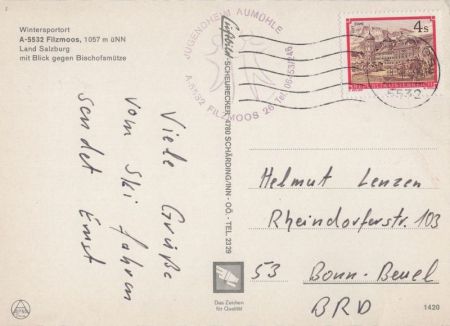 Wintersportort
A-5532 Filzmoos, 1057 m üNN
Land Salzburg
mit Blick gegen Bischofsmütze
JUGENDHEIM AUMÜHLE
A-5532 FILZMOOS 26 Tel. 06453/240
STAMS
4s
REPUBLIK ÖSTERREICH
5532
Luftbild-SCHEURECKER, 4780 SCHÄRDING/INN - OÖ. - TEL. 2329
Viele Grüße
vom Ski fahren
sendet Ernst
Helmut Lenzen
Rheindorferstr. 103
53 Bonn-Beuel
BRD
Das Zeichen
für Qualität
1420